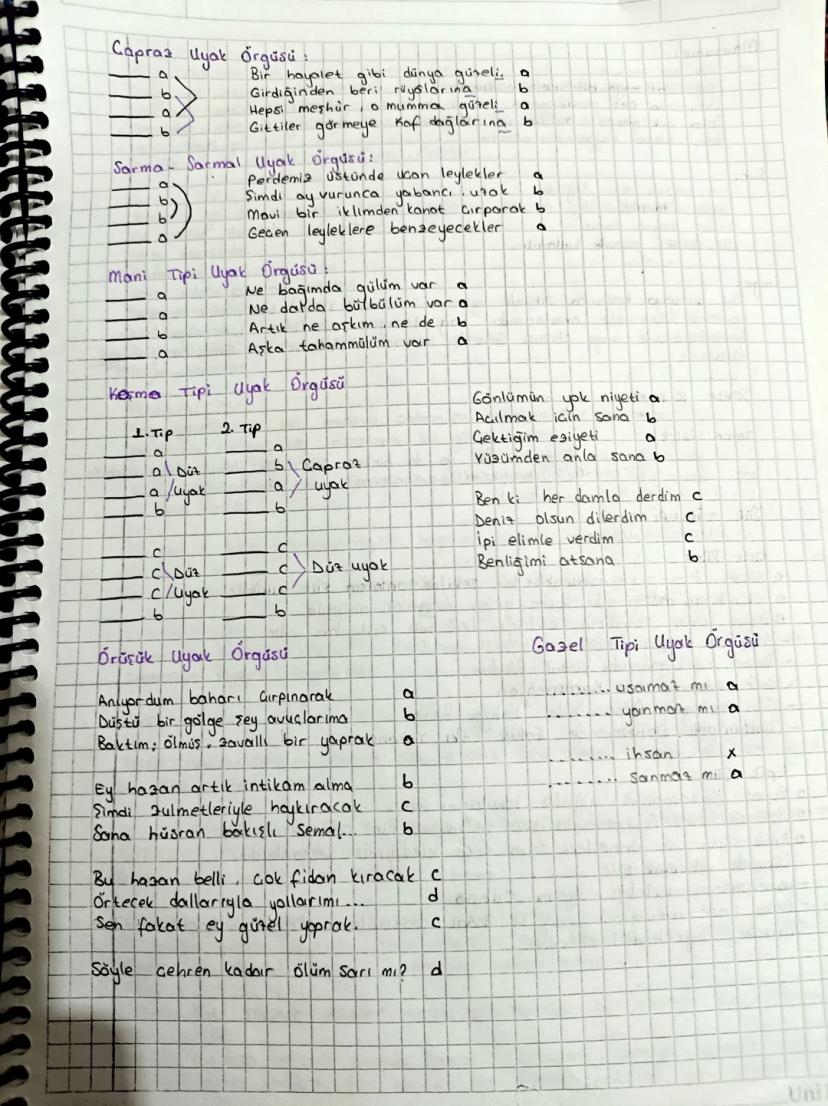 Çapraz Uyak Örgüsü:
___ a Bir hayalet gibi dünya güzeli a
___ b Girdiğinden beri rüyalarına b
___ a Hepsi meşhûr, o mumma güzeli a
___ b Gittiler görmeye Kaf dağlarına b
Sarma-Sarmal Uyak Örgüsü:
___ a Perdemiz üstünde uçan leylekler a
___ b Şimdi ay vurunca yabancı, uzak b
___ b Mavi bir iklimden kanat çırparak b
___ a Geçen leyleklere benzeyecekler a
Mani Tipi Uyak Örgüsü:
___ a Ne bağımda gülüm var a
___ a Ne dalda bülbülüm var a
___ b Artık ne aşkım, ne de b
___ a Aşka tahammülüm var a
Koşma Tipi Uyak Örgüsü
1. Tip 2. Tip
___ a ___ a
___ a Düz ___ b Çapraz
___ a uyak ___ a uyak
___ b ___ b
___ c ___ c
___ c Düz ___ c Düz uyak
___ c uyak ___ c
___ b ___ b
Gönlümün yok niyeti a
Açılmak için sana b
Çektiğim eziyeti a
Yüzümden anla sana b
Ben ki her damla derdim c
Deniz olsun dilerdim c
İpi elimle verdim c
Benliğimi atsana b
Örüşük Uyak Örgüsü
Anıyordum baharı çırpınarak a
Düştü bir gölge şey avuçlarıma b
Baktım; ölmüş, zavallı bir yaprak a
Ey hazan artık intikam alma b
Şimdi zulmetleriyle haykıracak c
Sana hüsran bakışlı sema!... b
Bu hazan belli, çok fidan kıracak c
Örtecek dallarıyla yollarımı... d
Sen fakat ey güzel yaprak. c
Söyle çehren kadar ölüm sarı mı? d
Gazel Tipi Uyak Örgüsü
......... usanmaz mı a
....... yanmaz mı a
........ ihsan x
....... sanmaz mı a
Uni